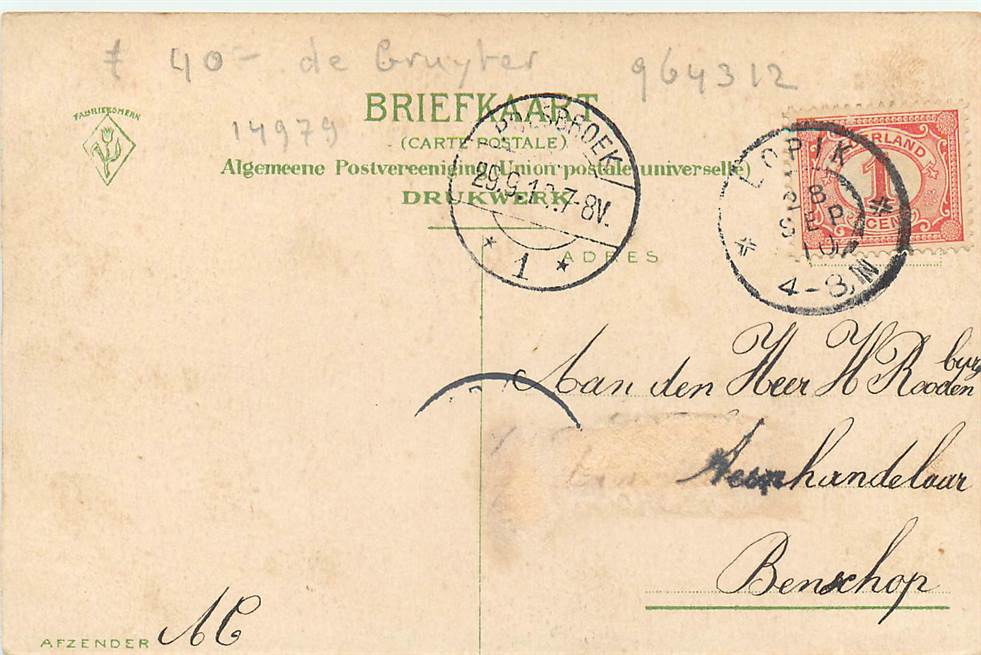 ƒ 40- de Gruyter 964312
FABRIEKSMERK
BRIEFKAART
14979
(CARTE POSTALE)
Algemeene Postvereeniging (Union postale universelle)
DRUKWERK
29.9.10.7-8V.
1
LOPIK
8 SEP 10
4-8 N
NEDERLAND
1
CENT
ADRES
Aan den Heer H Rooden
burg
handelaar
Benschop
AFZENDER AC